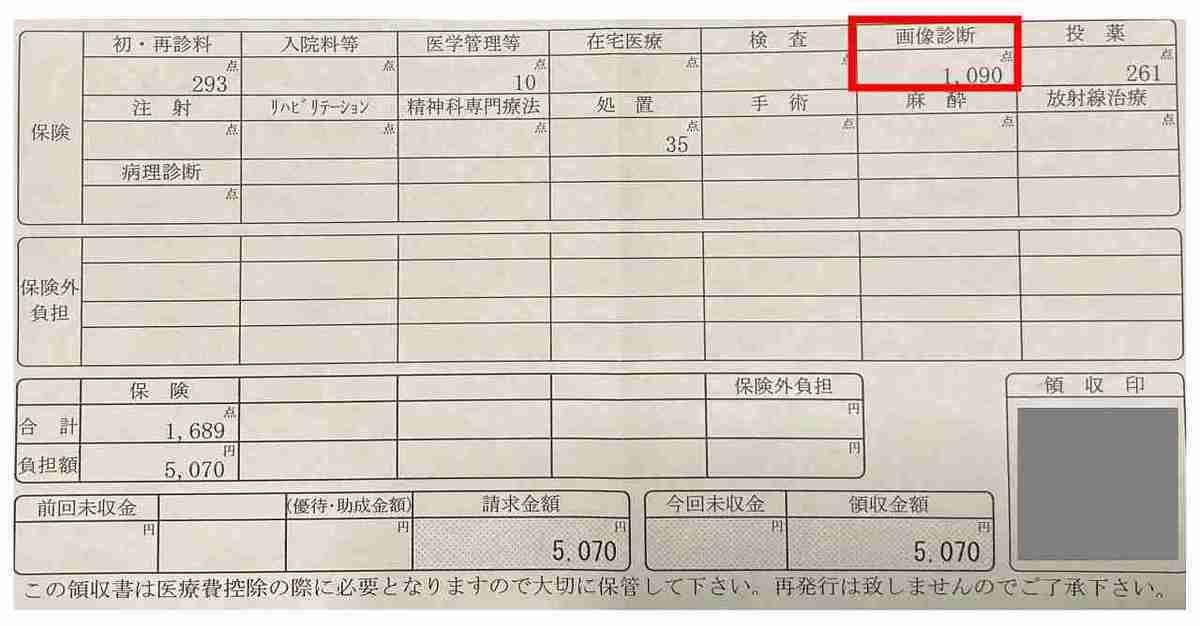 初・再診料 入院料等 医学管理等 在宅医療 検 査 画像診断 投 薬
点 点 点 点 点 点 点
293 10 1,090 261
保険
注 射 ﾘﾊﾋﾞﾘﾃｰｼｮﾝ 精神科専門療法 処 置 手 術 麻 酔 放射線治療
点 点 点 点 点 点 点
35
病理診断
点
保険外
負担
保 険 保険外負担
合 計 1,689 点 円
負担額 5,070 円 円
領 収 印
前回未収金 (優待・助成金額) 請求金額 今回未収金 領収金額
円 円 円 円 円
5,070 5,070
この領収書は医療費控除の際に必要となりますので大切に保管して下さい。再発行は致しませんのでご了承下さい。